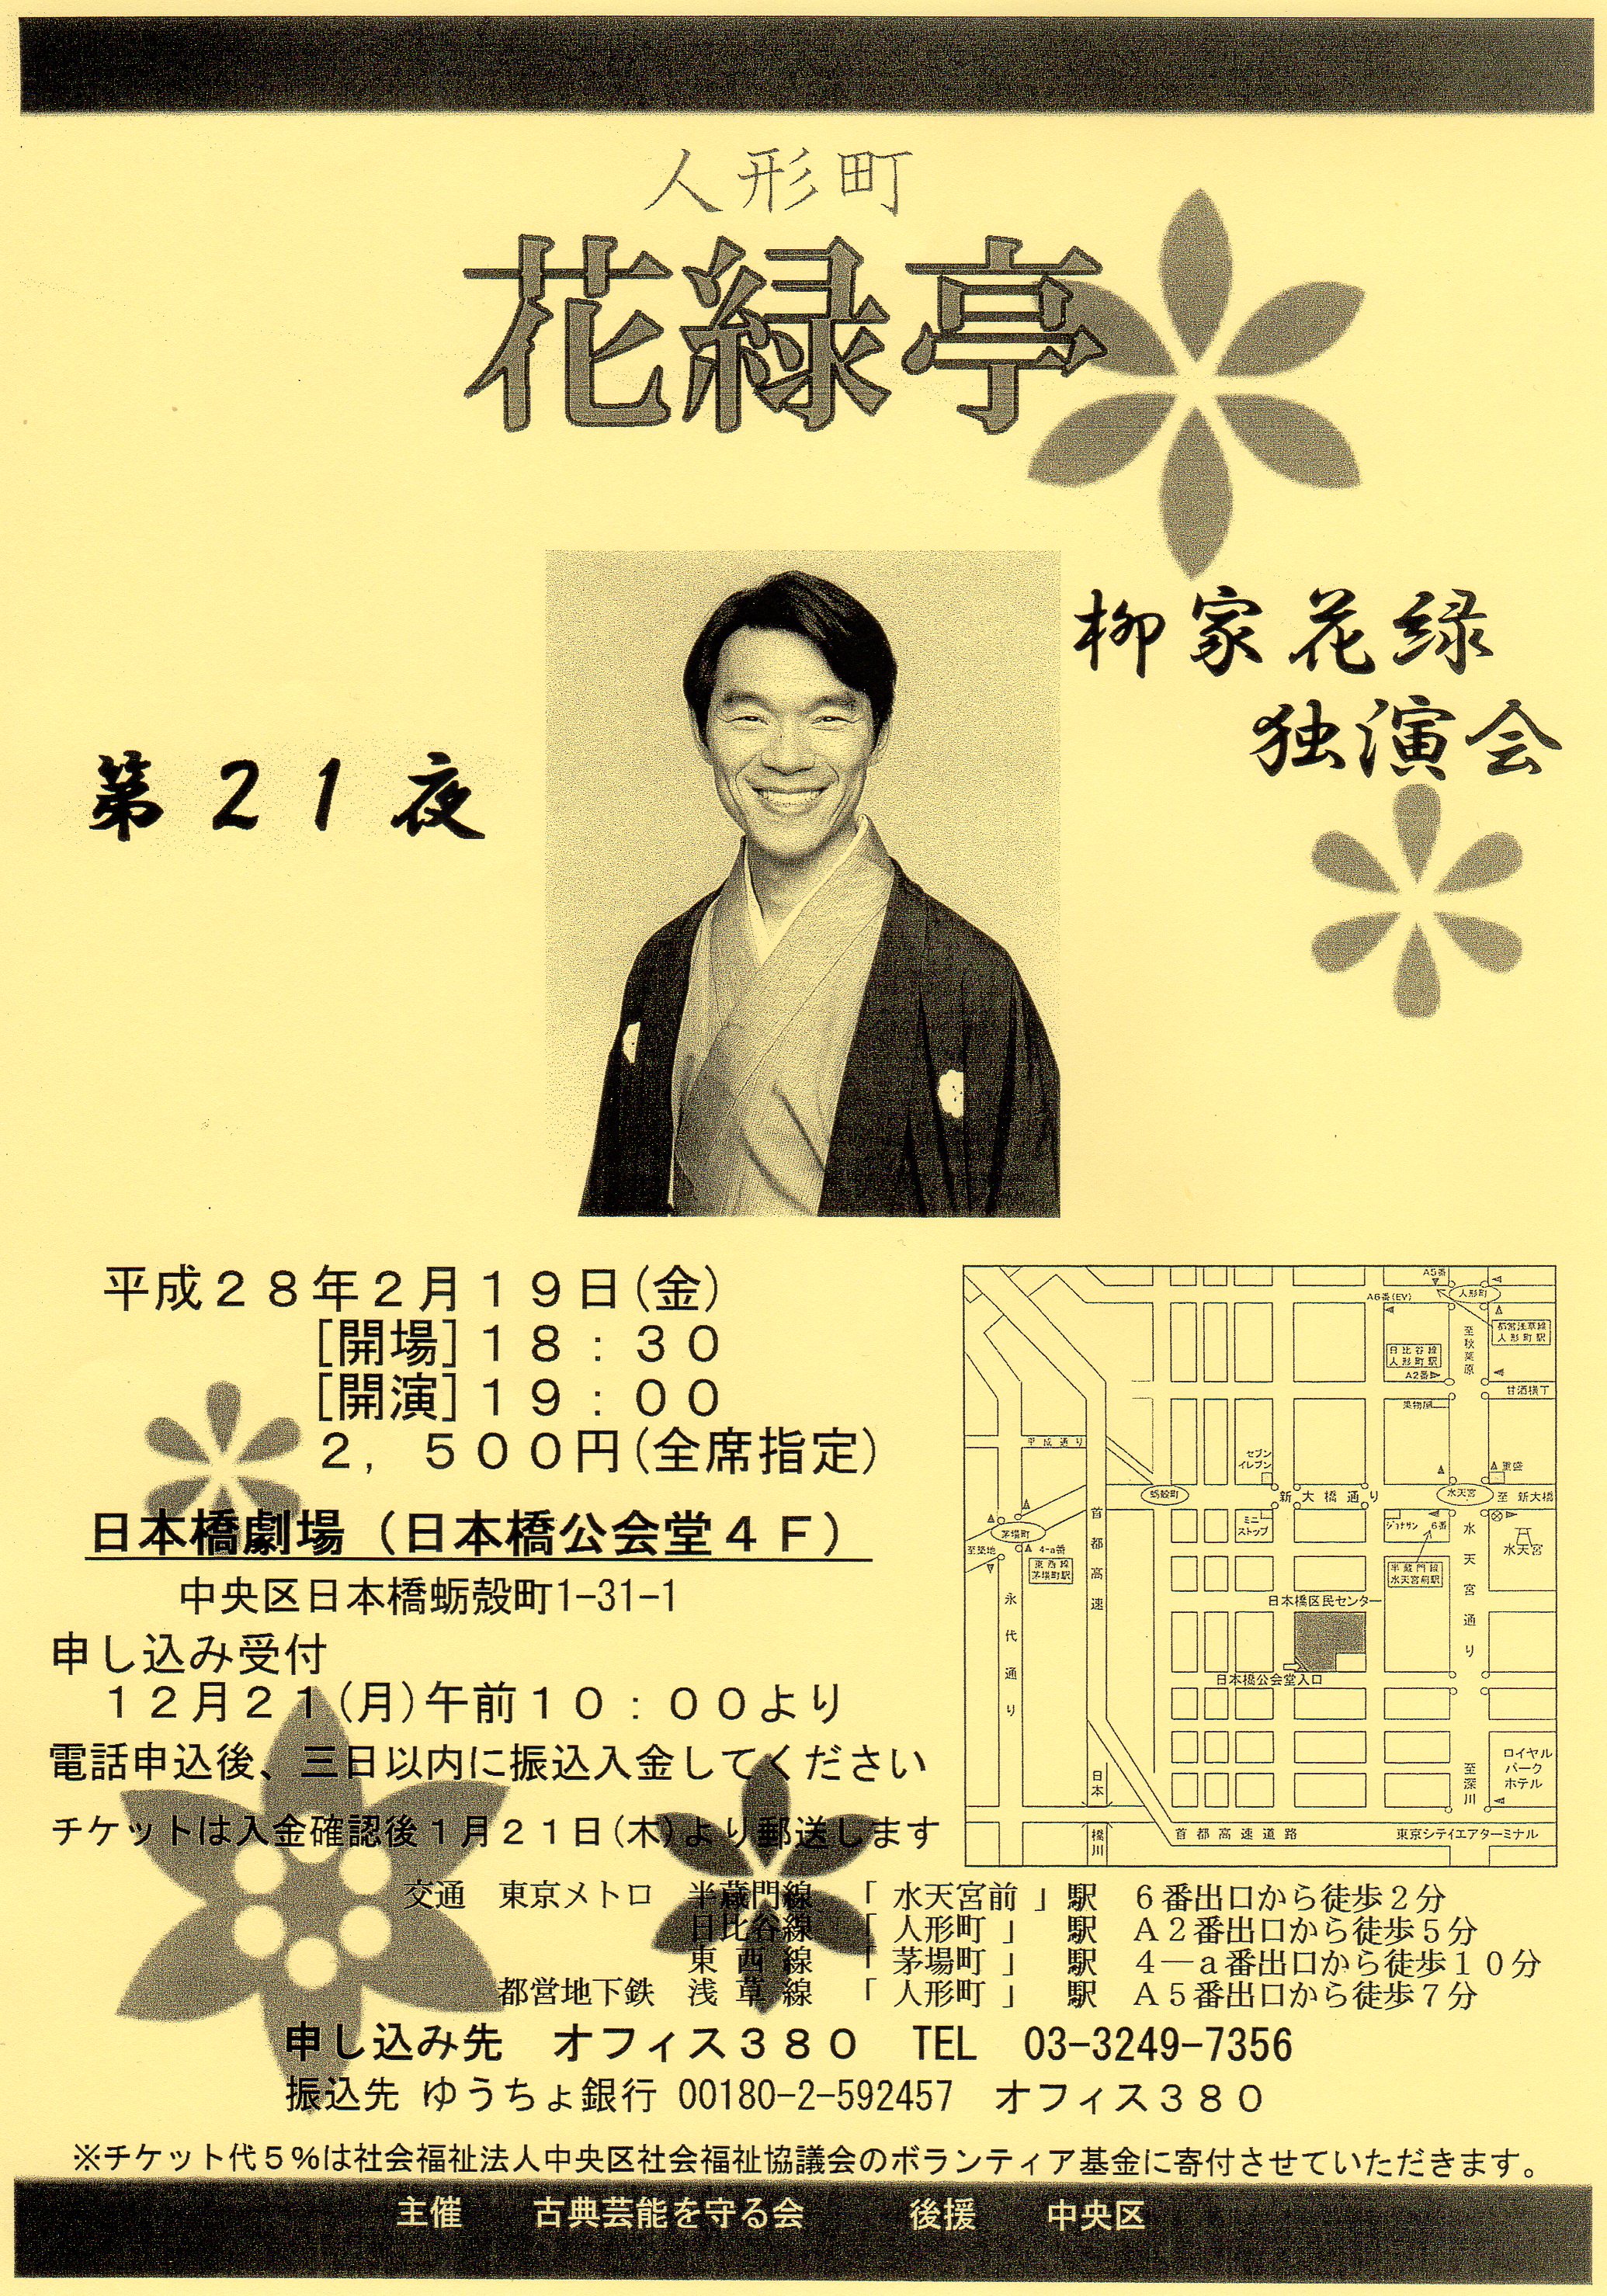 人形町
花緑亭
柳家花緑
独演会
第２１夜
平成２８年２月１９日(金)
[開場]１８：３０
[開演]１９：００
２，５００円(全席指定)
日本橋劇場（日本橋公会堂４Ｆ）
中央区日本橋蛎殻町1-31-1
申し込み受付
１２月２１(月)午前１０：００より
電話申込後、三日以内に振込入金してください
チケットは入金確認後１月２１日(木)より郵送します
A5番
人形町
A6番(EV)
都営浅草線
人形町駅
至秋葉原
日比谷線
人形町駅
A2番
甘酒横丁
果物屋
平成通り
セブン
イレブン
重盛
蛎殻町
新大橋通り
水天宮
至 新大橋
首都高速
ミニ
ストップ
ジョナサン
6番
水天宮
茅場町
至築地
4-a番
東西線
茅場町駅
半蔵門線
水天宮前駅
水天宮通り
永代通り
日本橋区民センター
日本橋公会堂入口
ロイヤル
パーク
ホテル
至深川
日本
橋川
首都高速道路
東京シティエアターミナル
交通　東京メトロ　半蔵門線　「 水天宮前 」駅　６番出口から徒歩２分
日比谷線　「 人形町 」　駅　Ａ２番出口から徒歩５分
東 西 線　「 茅場町 」　駅　４―ａ番出口から徒歩１０分
都営地下鉄　浅 草 線　「 人形町 」　駅　Ａ５番出口から徒歩７分
申し込み先　オフィス３８０　TEL　03-3249-7356
振込先 ゆうちょ銀行 00180-2-592457　オフィス３８０
※チケット代５%は社会福祉法人中央区社会福祉協議会のボランティア基金に寄付させていただきます。
主催　　古典芸能を守る会　　　後援　　中央区